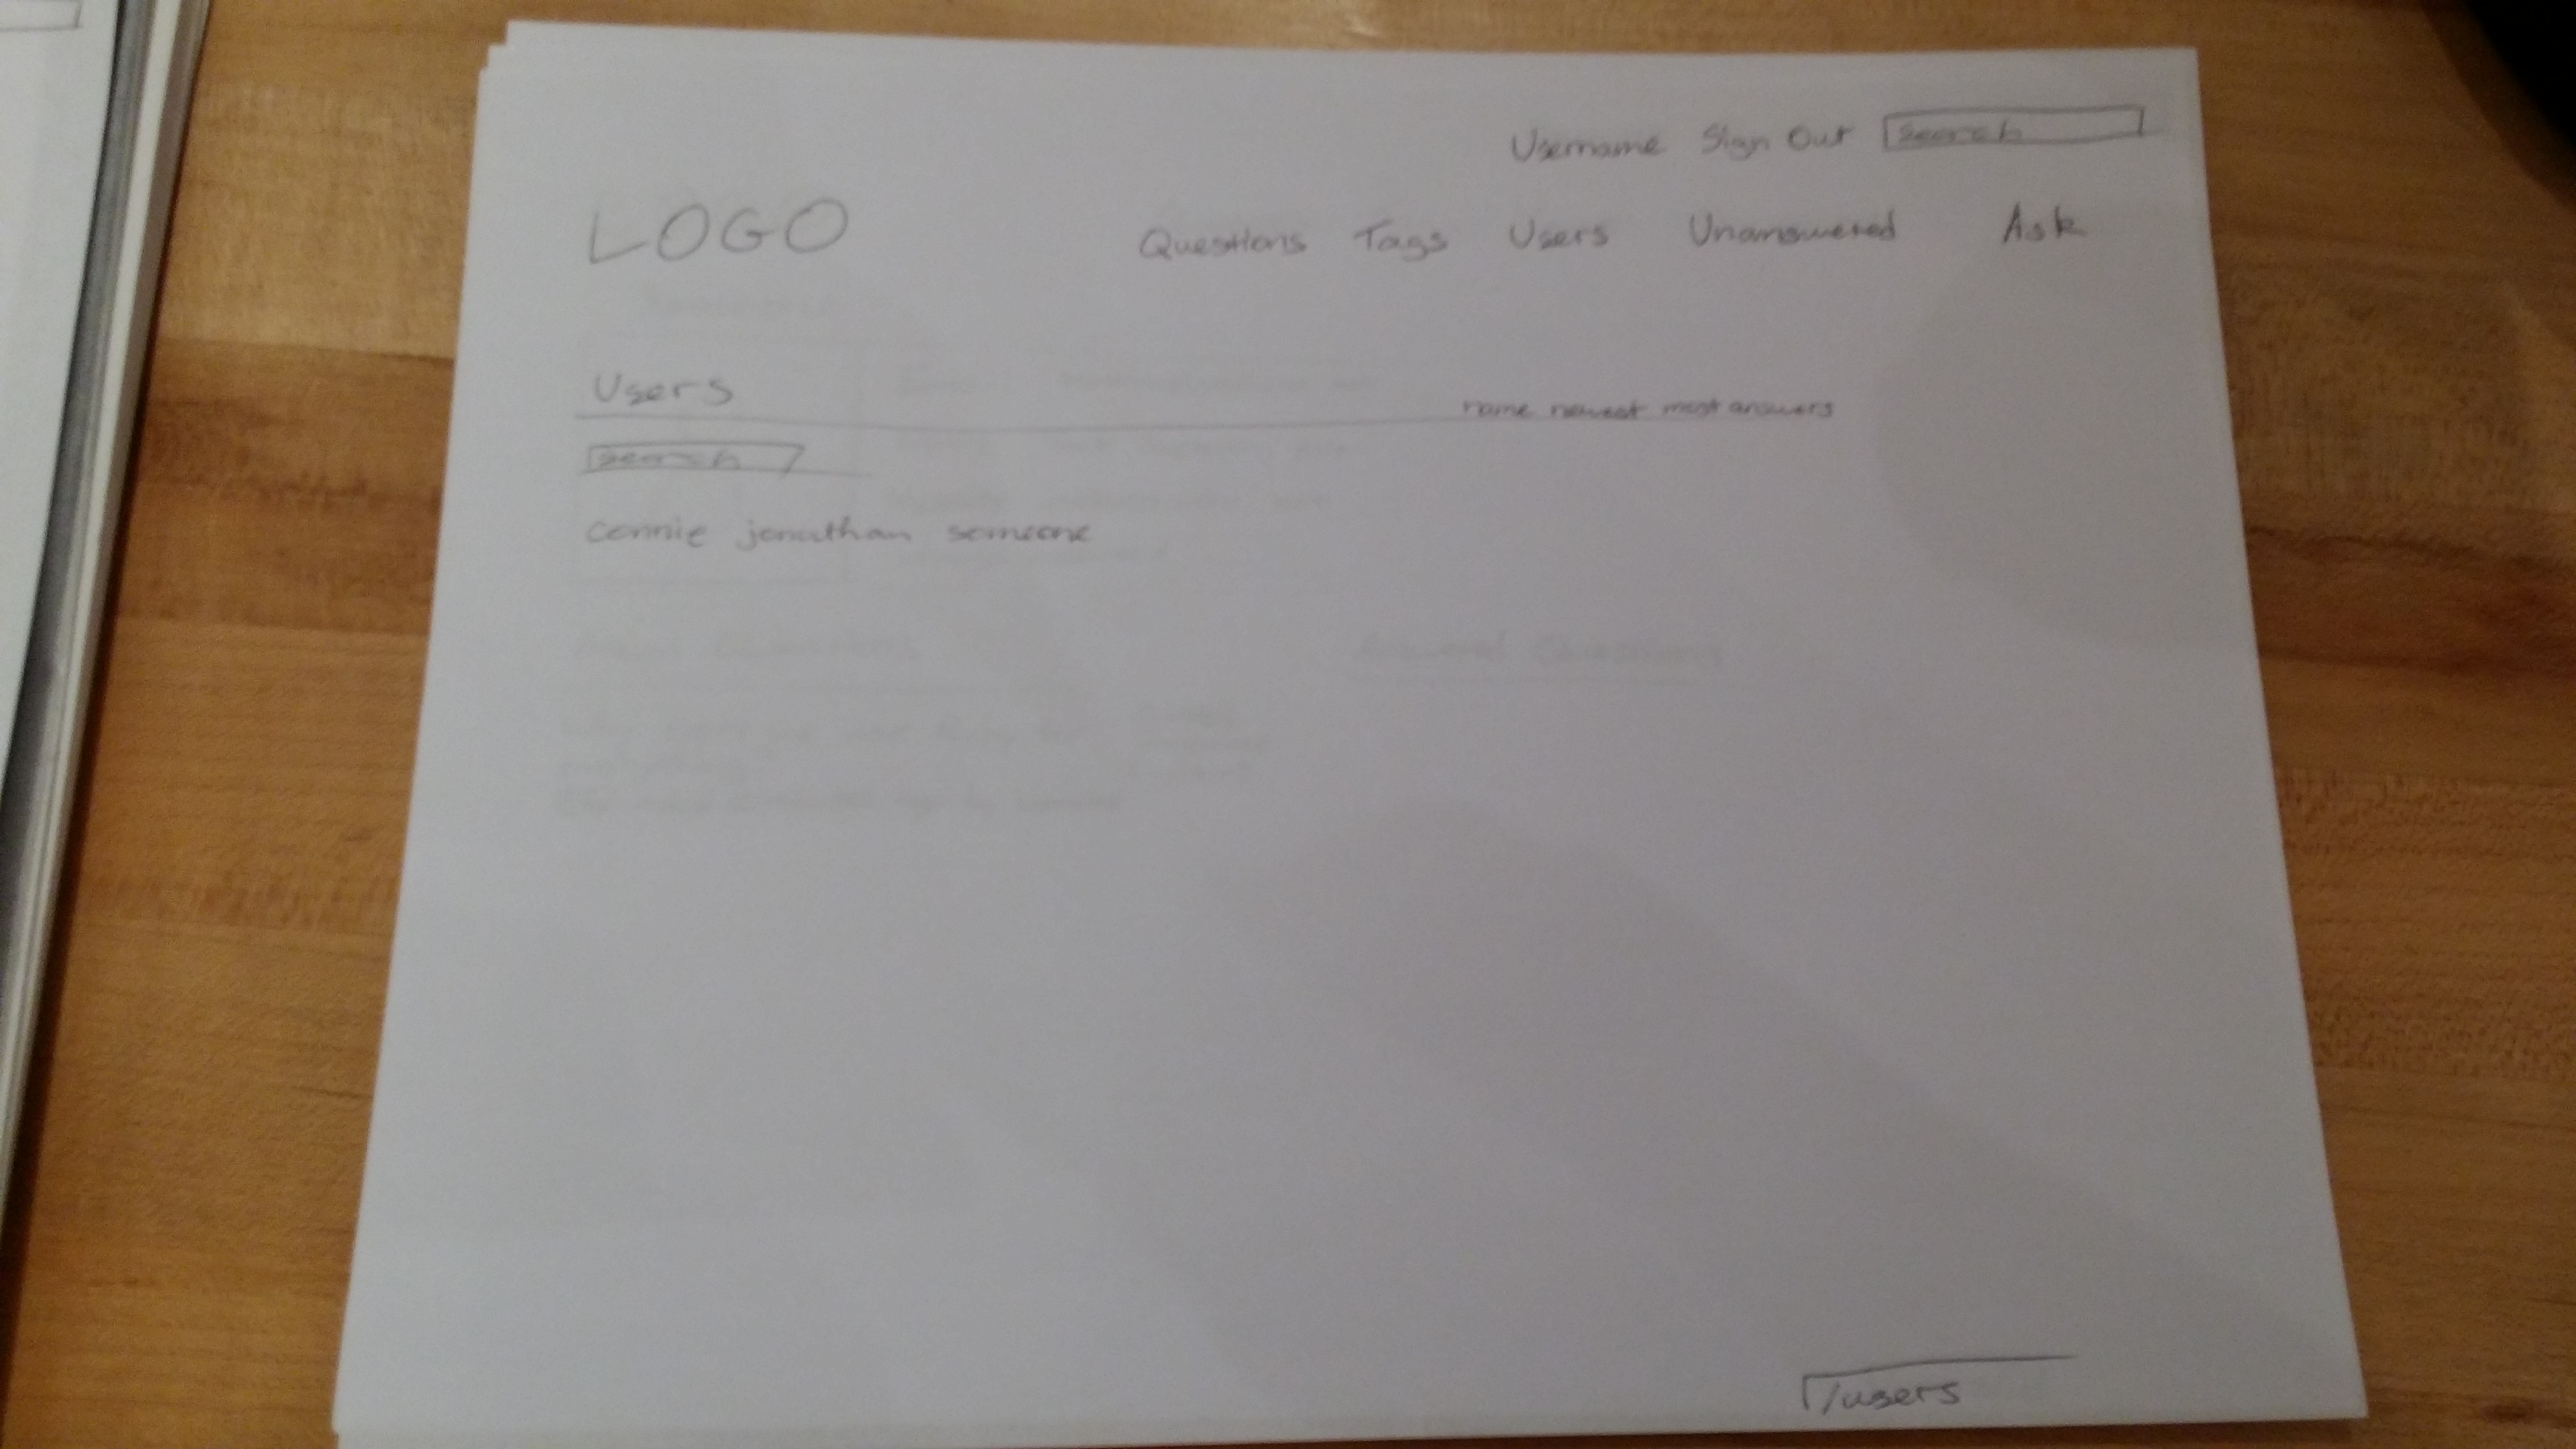 Username Sign Out search
LOGO Questions Tags Users Unanswered Ask
Users name newest most answers
search
connie jonathan someone
/users